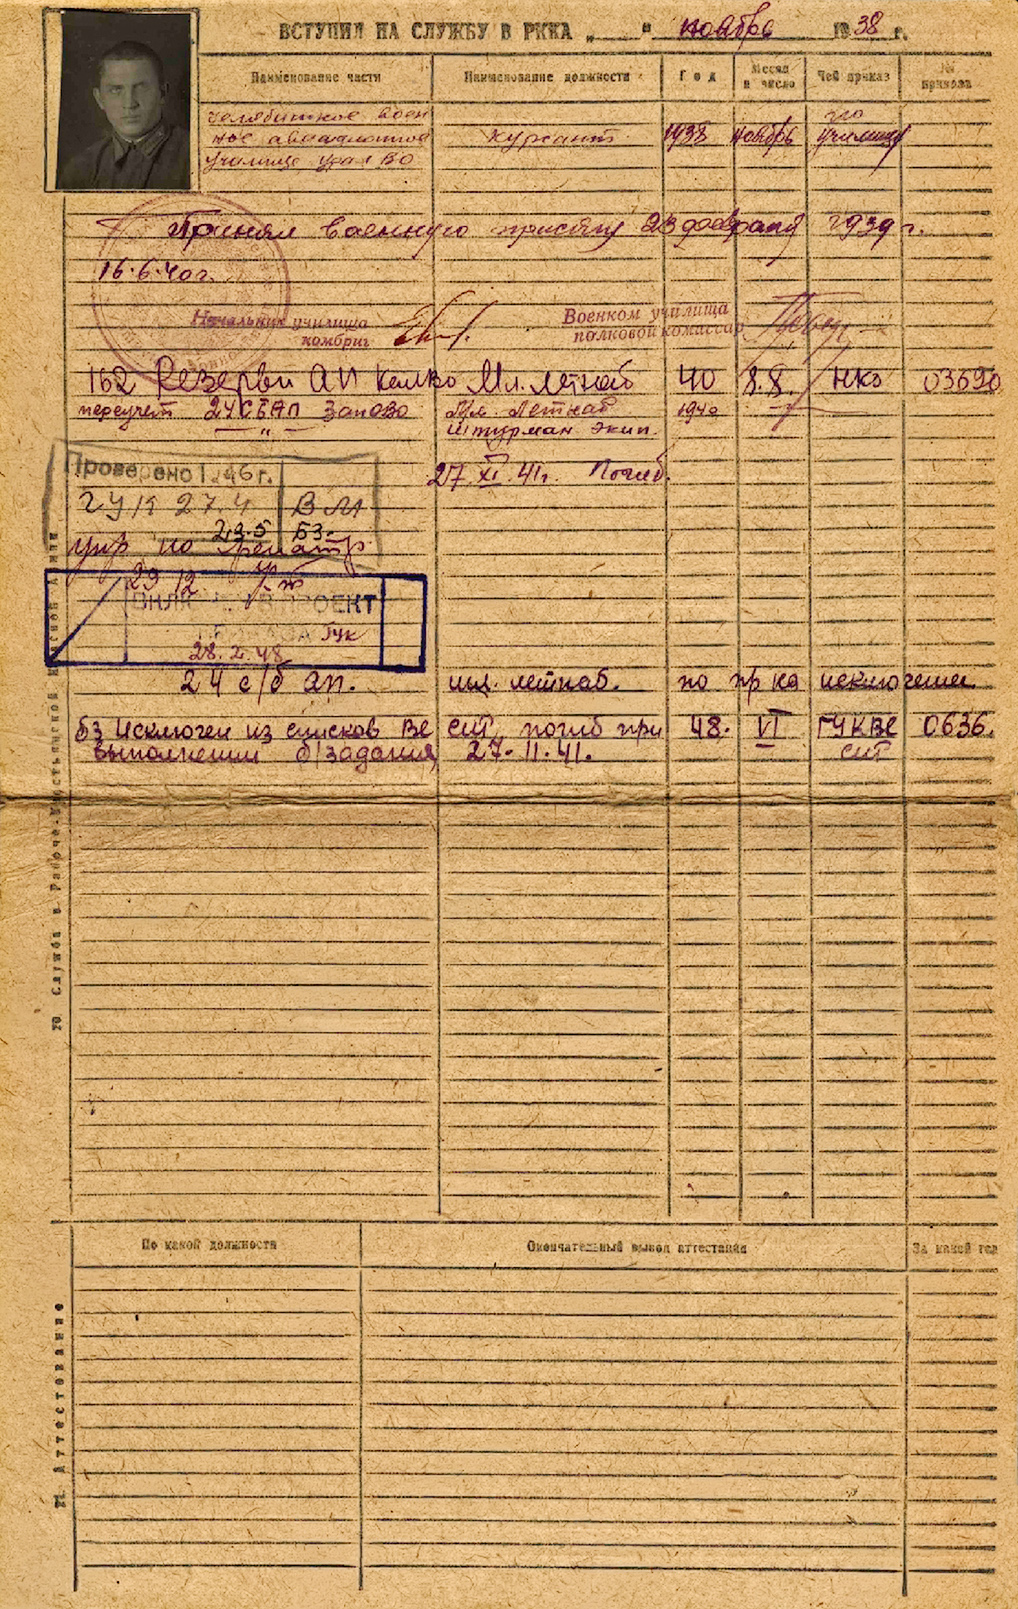 ВСТУПИЛ НА СЛУЖБУ В РККА „ " ноябрь 1938 г.
Наименование части Наименование должности Год Месяц и число Чей приказ № приказа
Челябинское воен
ное авиационное курсант 1938 ноябрь училищу
училище Урал ВО
Принял военную присягу 23 февраля 1939 г.
16.6.40 г.
Начальник училища
комбриг
Военком училища
полковой комиссар
162 Резервн АП Мл. летнаб 40 8.8. НКО 03690
переучет 24 СБАП Запово Мл. Летнаб 1940
" Штурман экип.
27.XI.41 г. Погиб.
Проверено 1.46 г.
ГУК 27.4 ВМ
23.5 БЗ.
упр по
29 12
В ПРОЕКТ
ГУК
28.2.48
24 с/б ап. мл. летнаб. по пр ка исключении
БЗ Исключен из списков ВС СМП, погиб при 48. VI ГУКВС 0636.
выполнении б/задания, 27.11.41. СМП
10 Служба в Рабоче-Крестьянской Красной Армии
По какой должности Окончательный вывод аттестации За какой год
11. Аттестование